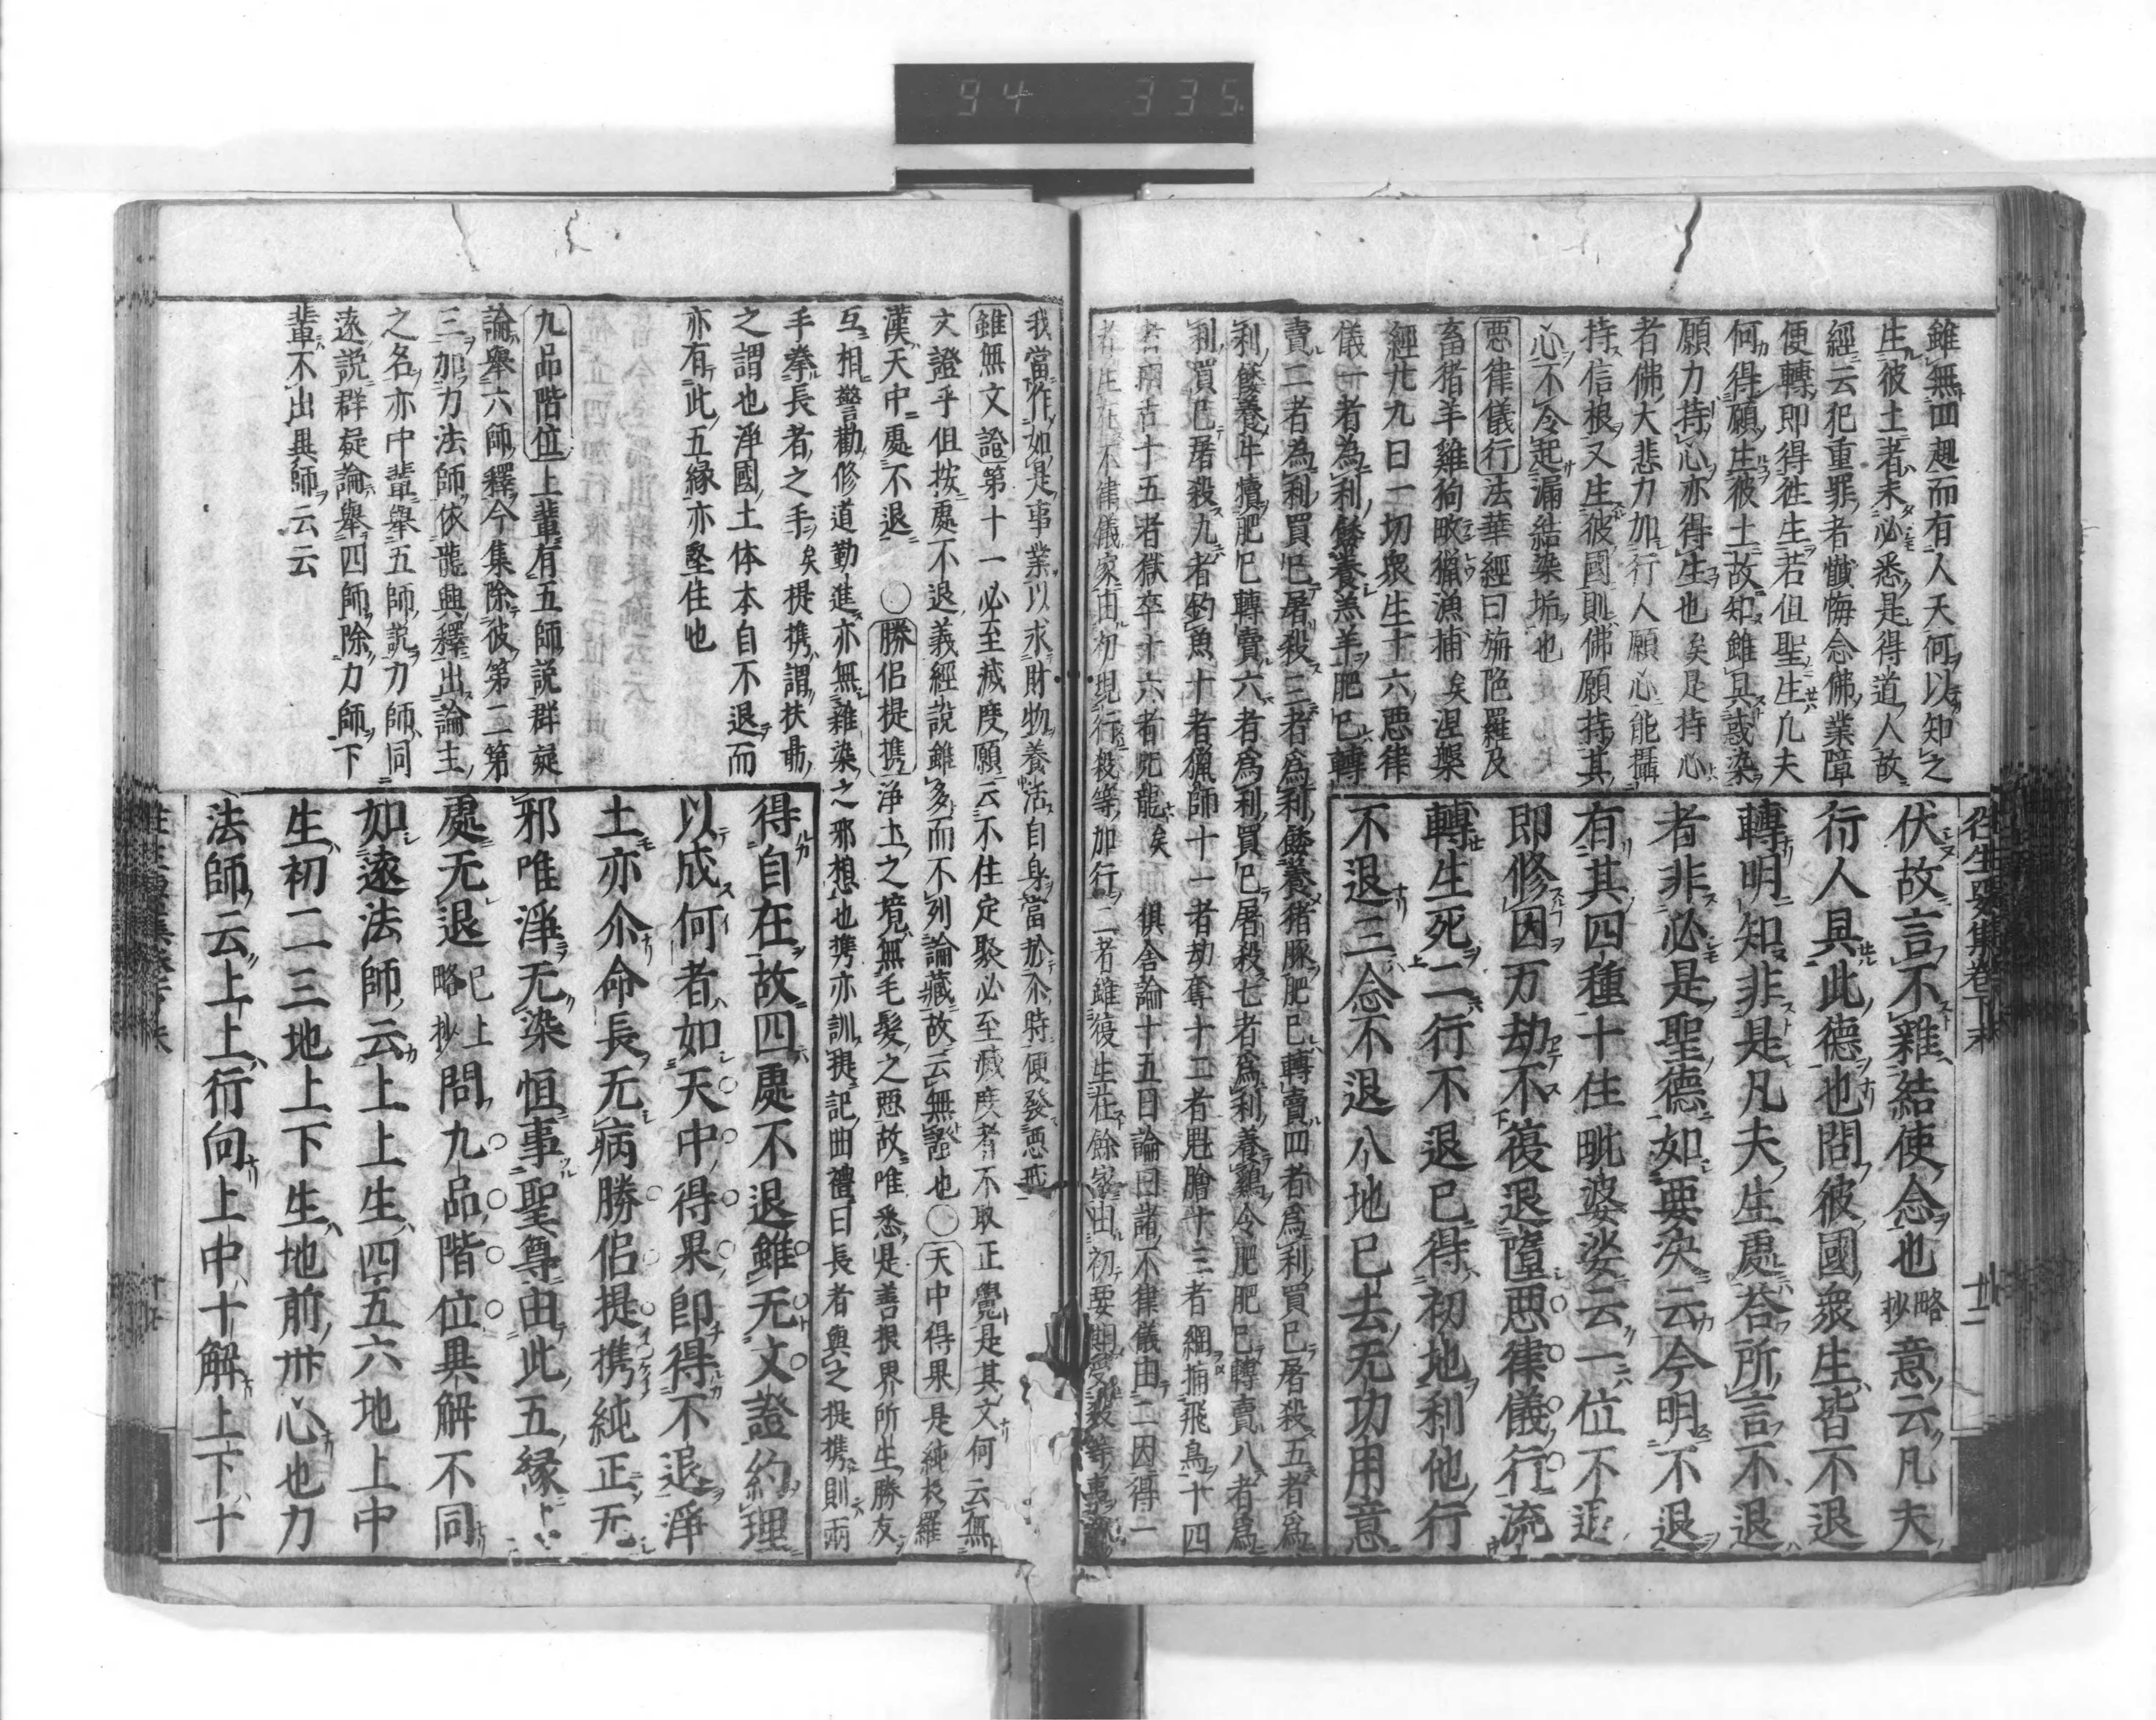 94 335
往生要集卷下末 廿一
雖無四趣而有人天何以知之
生彼土者未必悉是得道人故
經云犯重罪者懺悔念佛業障
便轉即得徃生若但聖生凡夫
何得願生彼土故知雖具惑染
願力持心亦得生也矣是持心
者佛大悲力加行人願心能攝
持信根又生彼國則佛願持其
心不令起漏結染垢也
惡律儀行法華經曰旃陁羅及
畜猪羊雞狗畋獵漁捕矣涅槃
經九九曰一切衆生十六惡律
儀一者為利餧養羔羊肥已轉
賣二者為利買已屠殺三者為利餧養猪豚肥已轉賣四者為利買已屠殺五者為
利餧養牛犢肥已轉賣六者為利買已屠殺七者為利養鷄令肥肥已轉賣八者為
利買已屠殺九者釣魚十者獵師十一者劫奪十二者魁膾十三者網捕飛鳥十四
者兩舌十五者獄卒十六者咒龍矣 俱舍論十五曰論曰諸不律儀由二因得一
者生在不律儀家由初現行殺等加行二者雖復生在餘家由初要期受殺等事
伏故言不雜結使念也略抄意云凡夫
行人具此德也問彼國衆生皆不退
轉明知非是凡夫生處荅所言不退
者非必是聖德如要决云今明不退
有其四種十住毗婆娑云一位不退
即修因万劫不復退墮惡律儀行流
轉生死二行不退已得初地利他行
不退三念不退八地已去无功用意
我當作如是事業以求財物養活自身當於尒時便發惡戒
雖無文證第十一必至滅度願云不住定聚必至滅度者不取正覺是其文何云無
文證乎但按處不退義經說雖多而不列論藏故云無證也○天中得果是純抆羅
漢天中處不退 ○勝侶提携淨土之境無毛髮之惡故唯悉是善根界所生勝友
互相警勸修道勤進亦無雜染之邪想也携亦訓提記曲禮曰長者與之提携則兩
手拳長者之手矣提携謂扶助
之謂也淨國土体本自不退而
亦有此五緣亦堅住也
九品階位上輩有五師說群疑
論舉六師釋今集除彼第二第
三加力法師依龍興釋出論主
之名亦中輩舉五師說力師同
遠說群疑論舉四師除力師下
輩不出異師云云
得自在故四處不退雖无文證約理
以成何者如天中得果即得不退淨
土亦尒命長无病勝侶提携純正无
邪唯淨无染恒事聖尊由此五緣
處无退已上略抄問九品階位異解不同
如遠法師云上上生四五六地上中
生初二三地上下生地前卅心也力
法師云上上行向上中十解上下十